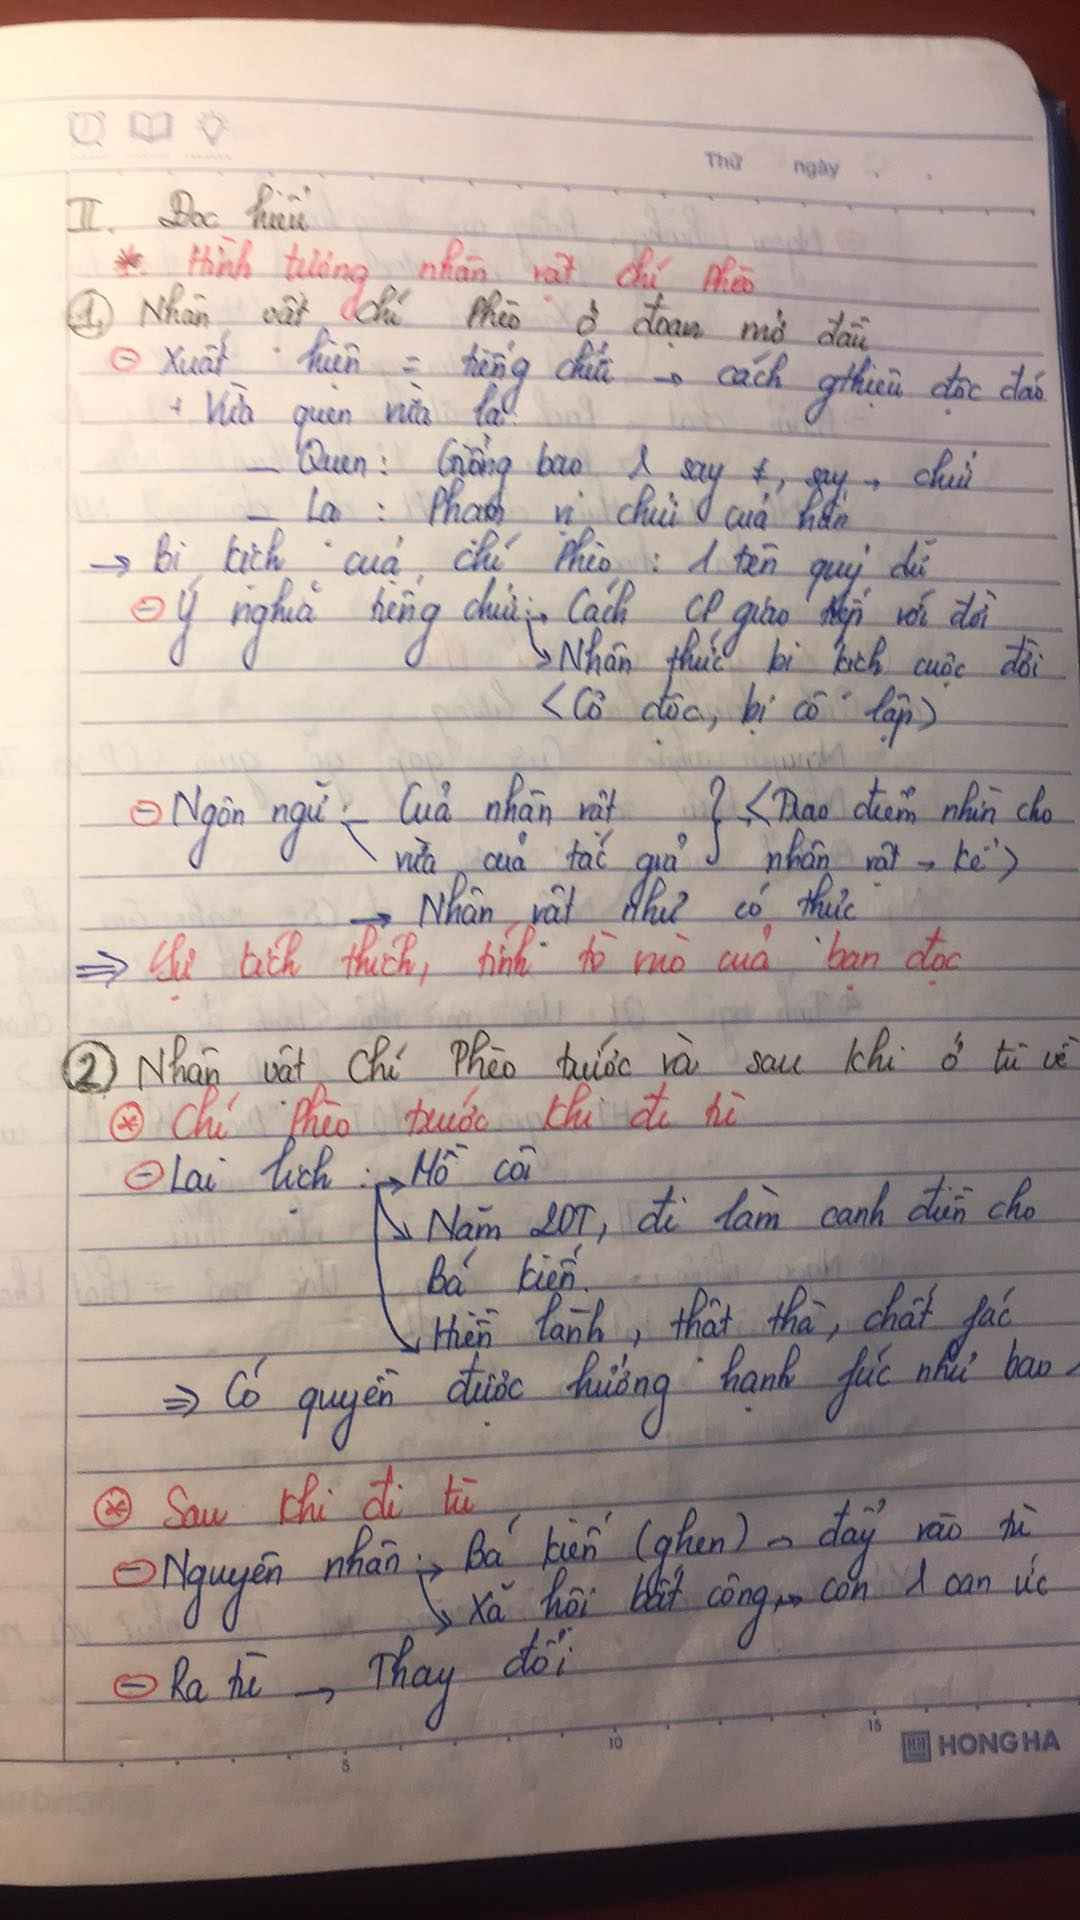 Thứ ngày
II. Đọc hiểu
* Hình tượng nhân vật Chí Phèo
1, Nhân vật Chí Phèo ở đoạn mở đầu
- Xuất hiện = tiếng chửi → cách gthiệu độc đáo
+ Vừa quen vừa lạ.
- Quen: Giống bao 1 say ≠, say → chửi
- Lạ: Phạm vi chửi của hắn
→ Bi kịch của Chí Phèo: 1 tên quỷ dữ
- Ý nghĩa tiếng chửi: → Cách CP giao tiếp với đời
↘ Nhận thức bi kịch cuộc đời
<Cô độc, bị cô lập>
- Ngôn ngữ: - Của nhân vật } <Trao điểm nhìn cho
vừa của tác giả nhân vật → kể>
→ Nhân vật như có thực
⇒ Sự kích thích, tính tò mò của bạn đọc
2 Nhân vật Chí Phèo trước và sau khi ở tù về
* Chí Phèo trước khi đi tù
- Lai lịch: → Mồ côi
↘ Năm 20T, đi làm canh điền cho
Bá Kiến.
↘ Hiền lành, thật thà, chất fác
⇒ Có quyền được hưởng hạnh fúc như bao
* Sau khi đi tù
- Nguyên nhân: → Bá Kiến (ghen) → đẩy vào tù
↘ Xã hội bất công, → con 1 oan ức
- Ra tù → Thay đổi:
5 10 15
HONG HA